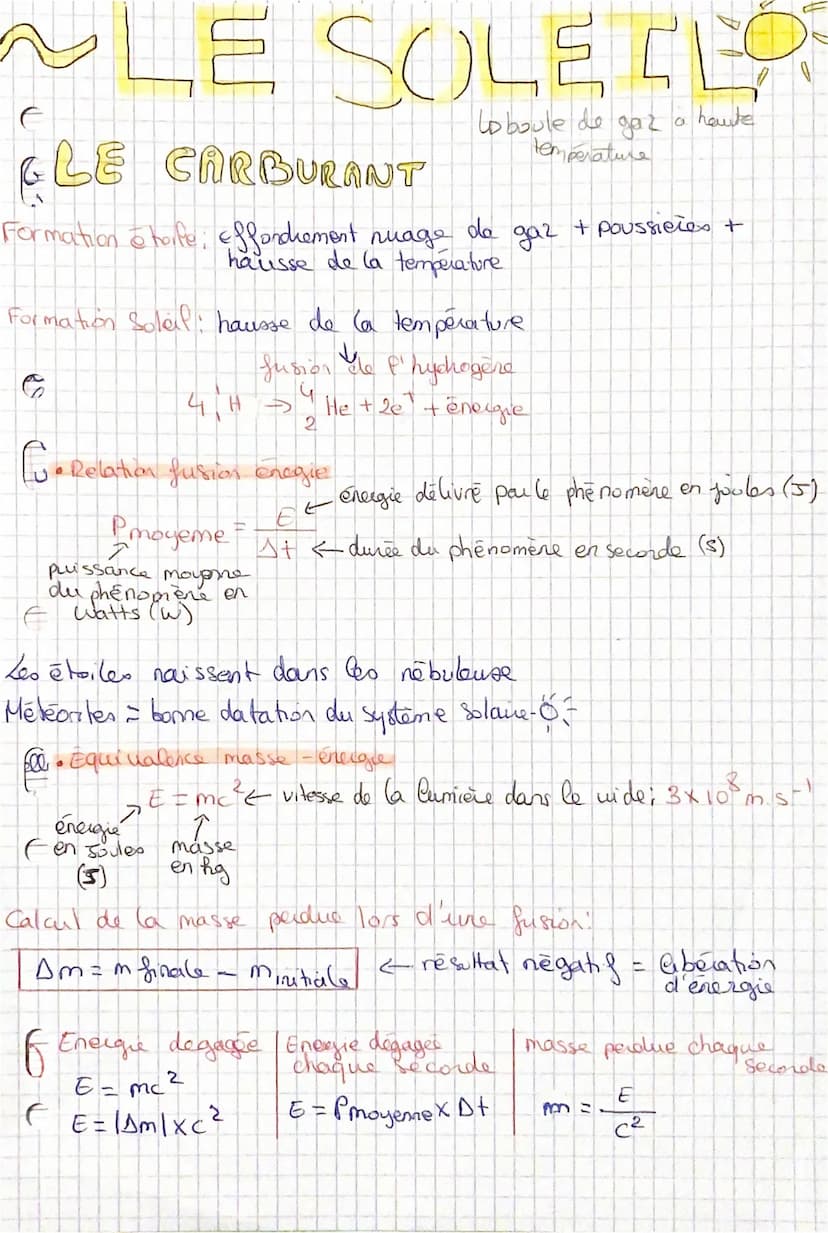 ~ LE SOLEIL
↳ boule de gaz à haute
température
LE CARBURANT
Formation étoile: effondrement nuage de gaz + poussières +
hausse de la température
Formation Soleil: hausse de la température
↓
fusion de l'hydrogène
4 ¹₁H → ⁴₂He + 2e⁺ + énergie
• Relation fusion énergie
Pmoyenne = E / Δt
← énergie délivré par le phénomène en joules (J)
← durée du phénomène en seconde (s)
puissance moyenne
du phénomène en
Watts (W)
Les étoiles naissent dans les nébuleuse
Météorites = bonne datation du système solaire
• Equivalence masse - énergie
E = mc² ← vitesse de la lumière dans le vide; 3 x 10⁸ m.s⁻¹
énergie
en Joules
(J)
masse
en kg
Calcul de la masse perdue lors d'une fusion:
Δm = m finale - m initiale ← résultat négatif = libération
d'énergie
Energie degagée
E = mc²
E = |Δm| x c²
Energie dégagée
chaque seconde
E = Pmoyenne x Δt
masse perdue chaque
seconde
m = E / c²